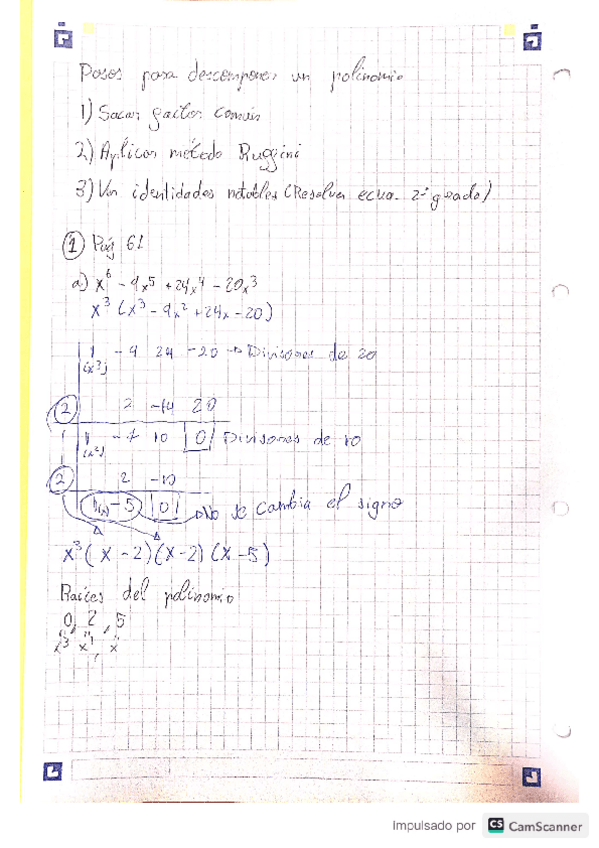 Pasos para descomponer un polinomio
1) Sacar factor común
2) Aplicar método Ruggini
3) Ver identidades notables (Resolver ecua. 2º grado)
① Pág 61
a) x⁶ - 9x⁵ + 24x⁴ - 20x³
x³ (x³ - 9x² + 24x - 20)
1 - 9 24 - 20 → Divisores de 20
(x³)
2 2 -14 20
1 1 - 7 10 0 Divisores de 10
(x²)
2 2 -10
1(x) - 5 0 → No se cambia el signo
x³ (x - 2) (x - 2) (x - 5)
Raíces del polinomio
0, 2, 5
Impulsado por CS CamScanner